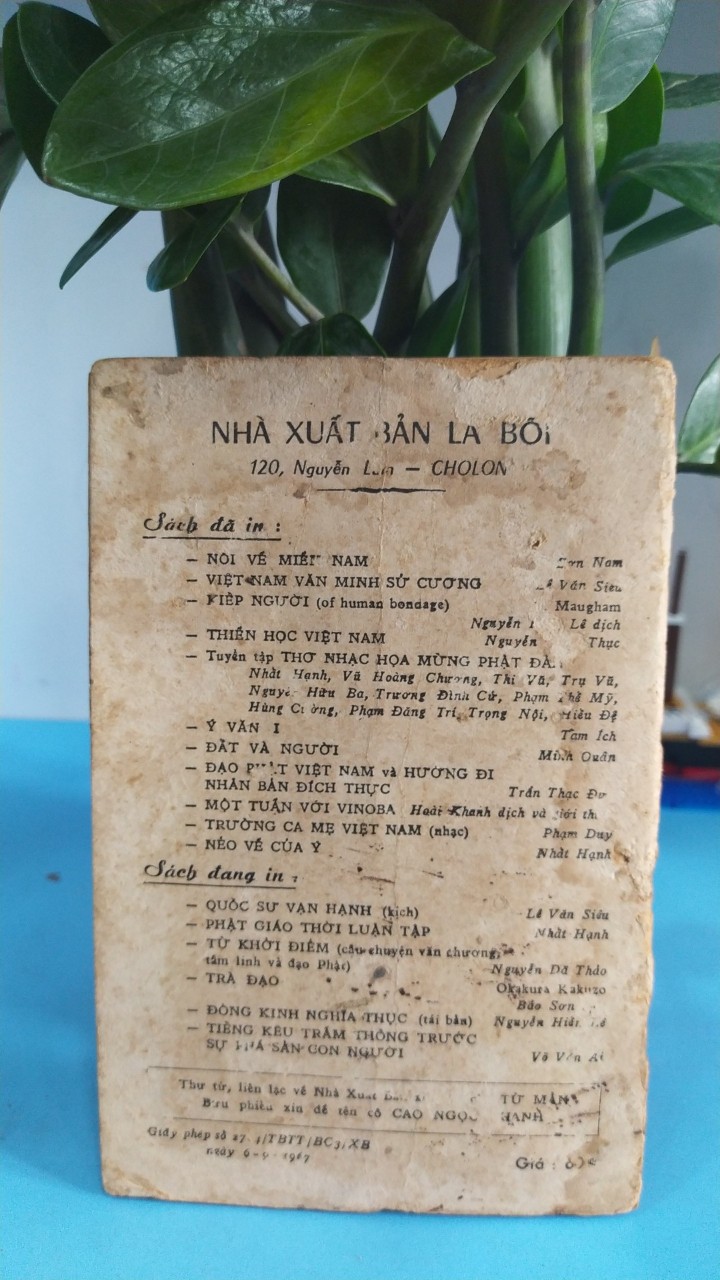 NHÀ XUẤT BẢN LA BỐI
120, Nguyễn — CHOLON
Sách đã in :
— NÓI VỀ MIỀN NAM Sơn Nam
— VIỆT NAM VĂN MINH SỬ CƯƠNG Lê Văn Siêu
— KIẾP NGƯỜI (of human bondage) Maugham
Nguyễn Lê dịch
— THIỀN HỌC VIỆT NAM Nguyễn Thục
— Tuyển tập THƠ NHẠC HỌA MỪNG PHẬT ĐẢN
Nhất Hạnh, Vũ Hoàng Chương, Thi Vũ, Trụ Vũ,
Nguyễn Hữu Ba, Trương Đình Cử, Phạm Thế Mỹ,
Hùng Cường, Phạm Đăng Trí, Trọng Nội, Hiếu Đệ
— Ý VĂN I Tam Ích
— ĐẤT VÀ NGƯỜI Minh Quân
— ĐẠO PHẬT VIỆT NAM và HƯỚNG ĐI
NHÂN BẢN ĐÍCH THỰC Trần Thạc Đức
— MỘT TUẦN VỚI VINOBA Hoài Khanh dịch và giới th.
— TRƯỜNG CA MẸ VIỆT NAM (nhạc) Phạm Duy
— NẺO VỀ CỦA Ý Nhất Hạnh
Sách đang in :
— QUỐC SƯ VẠN HẠNH (kịch) Lê Văn Siêu
— PHẬT GIÁO THỜI LUẬN TẬP Nhất Hạnh
— TỪ KHỞI ĐIỂM (câu chuyện văn chương,
tâm linh và đạo Phật) Nguyễn Dã Thảo
— TRÀ ĐẠO Okakura Kakuzo
Bảo Sơn
— ĐÔNG KINH NGHĨA THỤC (tái bản) Nguyễn Hiến Lê
— TIẾNG KÊU TRẦM THỐNG TRƯỚC
SỰ PHÁ SẢN CON NGƯỜI Võ Văn Ái
Thư từ, liên lạc về Nhà Xuất Bản TỪ MẪN
Bưu phiếu xin đề tên cô CAO NGỌC HẠNH
Giấy phép số /TBTT/BC3/XB
ngày 1967
Giá :